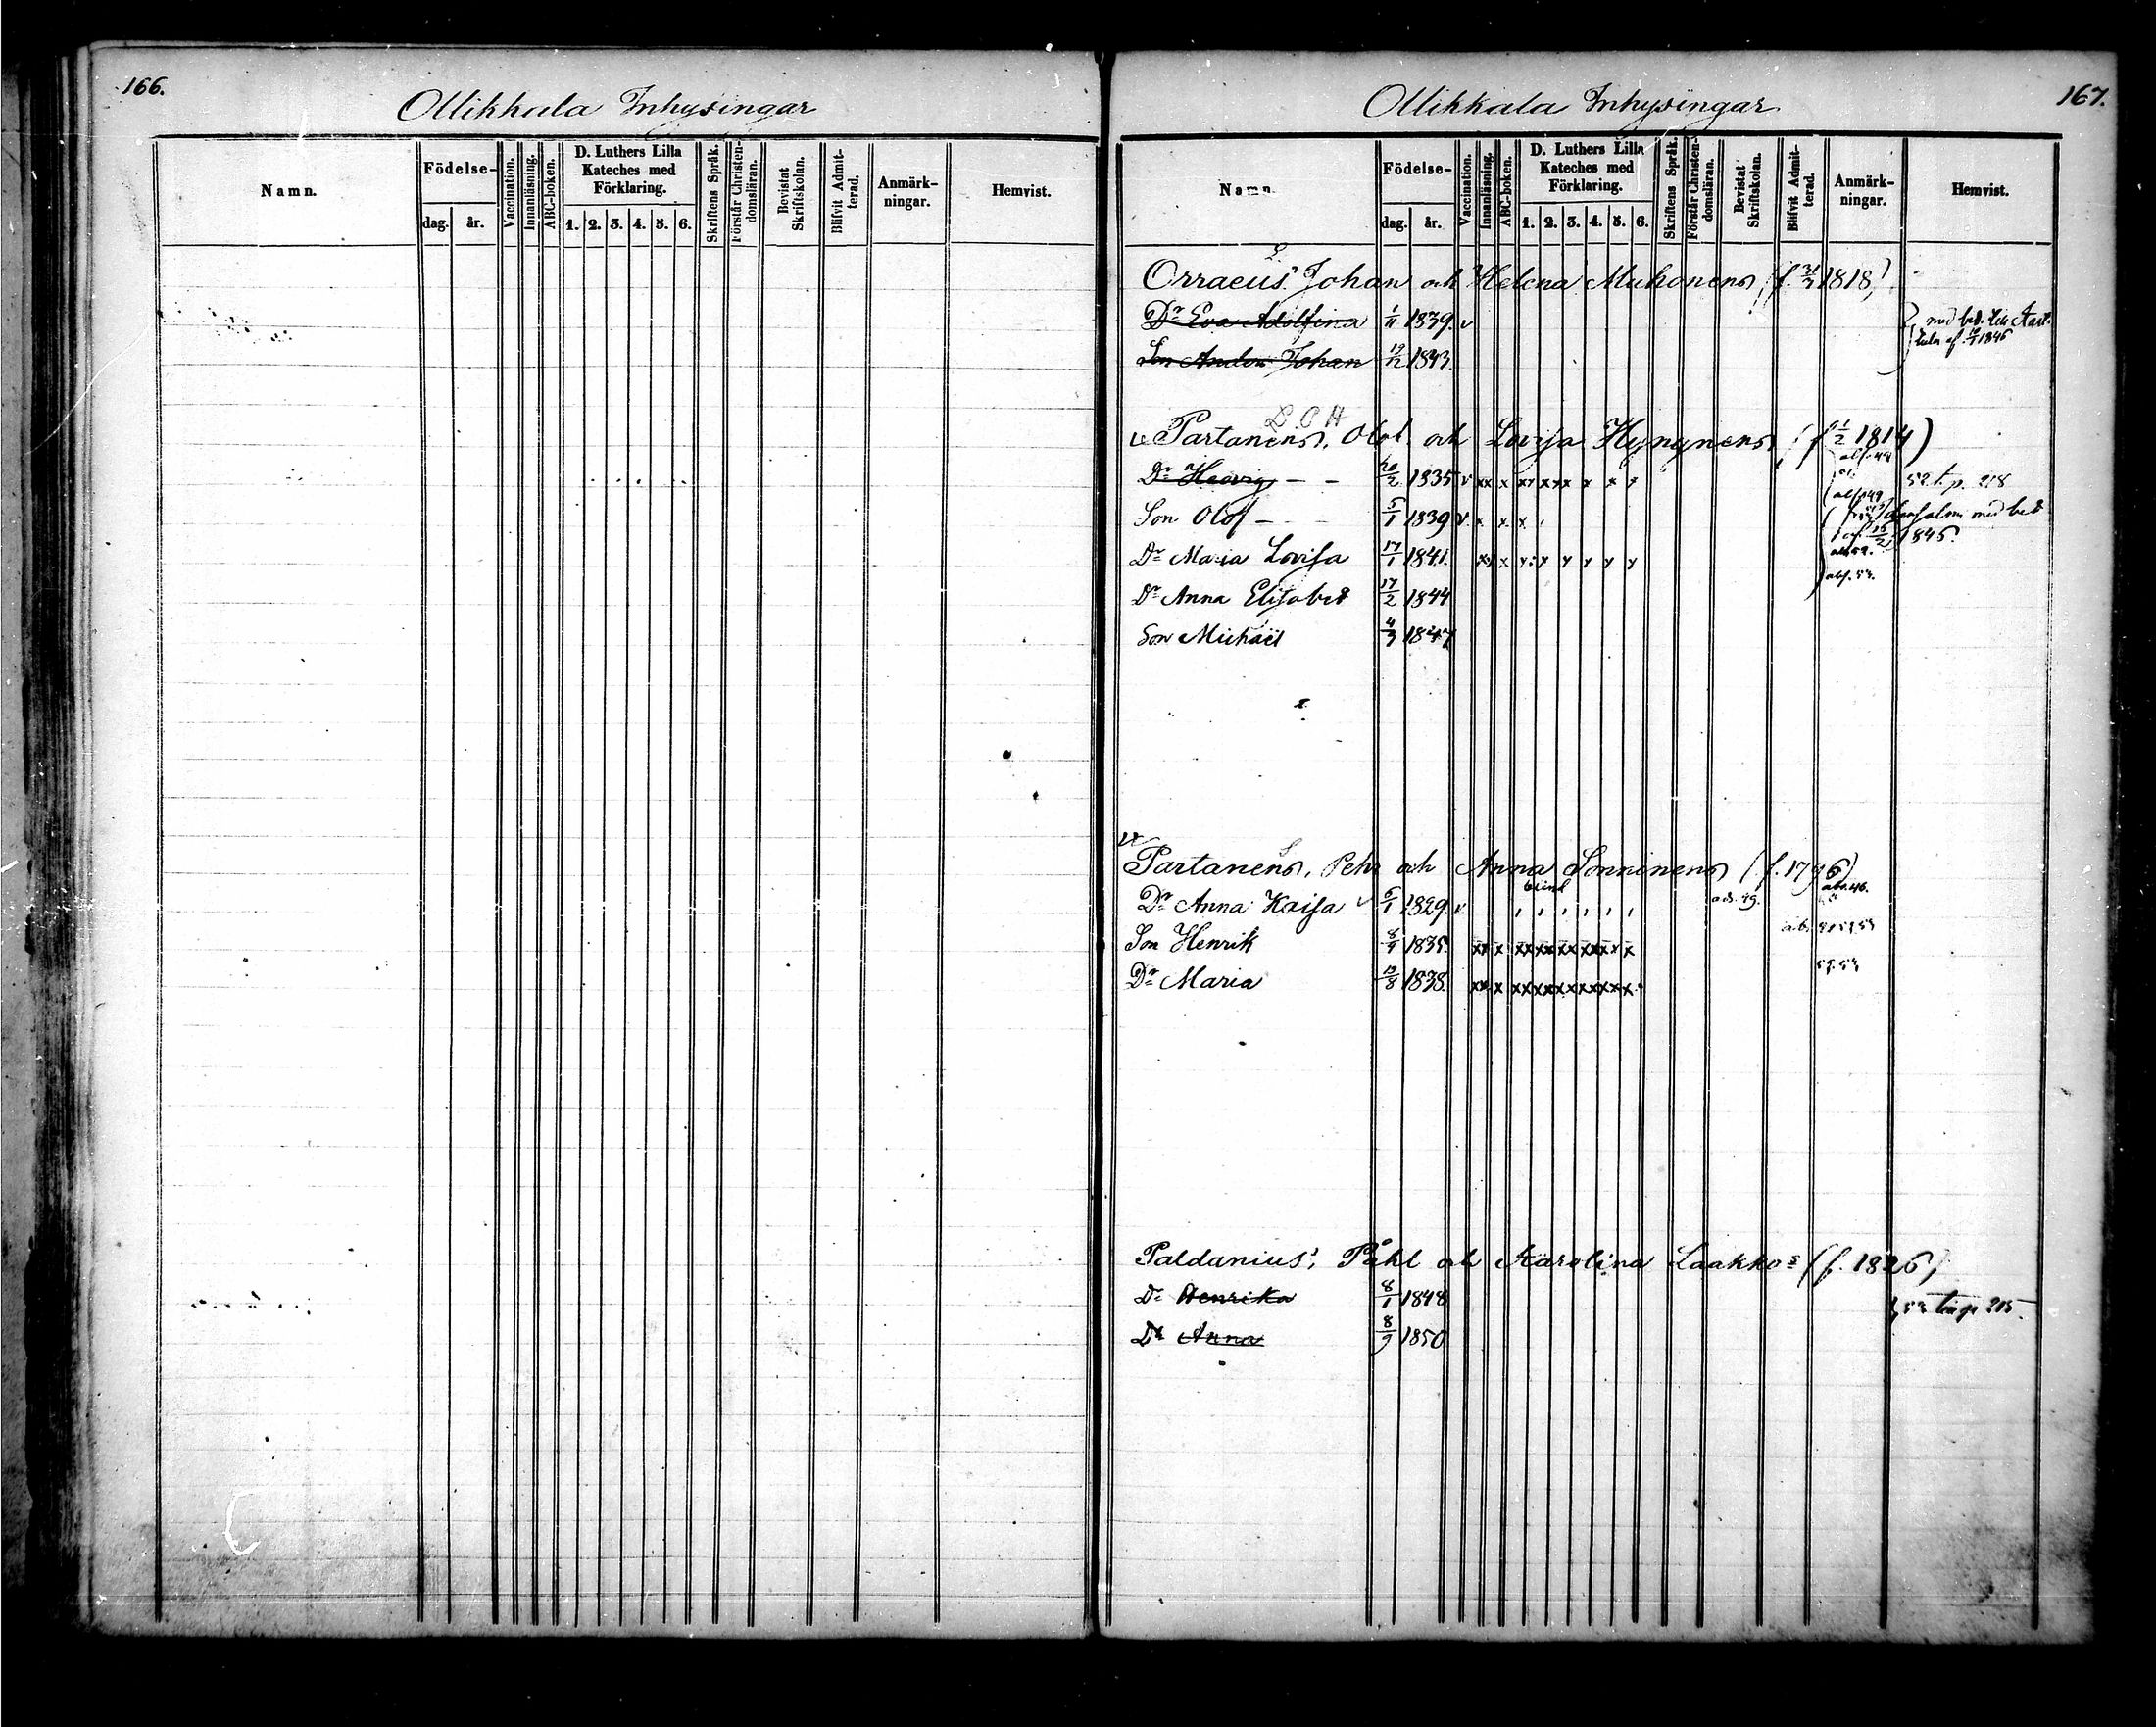 166.
Ollikkala Inhysingar
Namn.
Födelse-
dag. år.
Vaccination.
Innanläsning.
ABC-boken.
D. Luthers Lilla
Kateches med
Förklaring.
1. 2. 3. 4. 5. 6.
Skriftens Språk.
Förstår Christen-
domsläran.
Bevistat
Skriftskolan.
Blifvit Admit-
terad.
Anmärk-
ningar.
Hemvist.
167.
Ollikkala Inhysingar
Namn.
Födelse-
dag. år.
Vaccination.
Innanläsning.
ABC-boken.
D. Luthers Lilla
Kateches med
Förklaring.
1. 2. 3. 4. 5. 6.
Skriftens Språk.
Förstår Christen-
domsläran.
Bevistat
Skriftskolan.
Blifvit Admit-
terad.
Anmärk-
ningar.
Hemvist.
Orraeus' Johan och Helena Muhonens (f. 1818)
Dr Eva Adolfina 1/11 1839. v med bet. till
af 1846
Son Anders Johan 19/12 1843.
L. O H
Partanens, Olof och Lovisa Hynynens (f 1/2 1814)
Dr Hedvig - - 20/2 1835 v xx x x x x x 52 t. p. 218
Son Olof - - 5/1 1839 v x x x med bet
af 1845.
Dr Maria Lovisa 17/1 1841.
Dr Anna Elisabet 17/2 1844
Son Michaël 4/3 1847
Partanens, Pehr och Anna Sonninens (f. 1796)
blind
Dr Anna Kaisa v 6/1 1829. v.
Son Henrik 8/4 1835. xx x xx xx xx xx x x
Dr Maria 13/8 1838. xx x xx xx xx xx xx x
Paldanius', Påhl och Karolina Laakkos (f. 1826)
Dr Henrika 8/1 1848 53 t. p. 215.
Dr Anna 8/9 1850